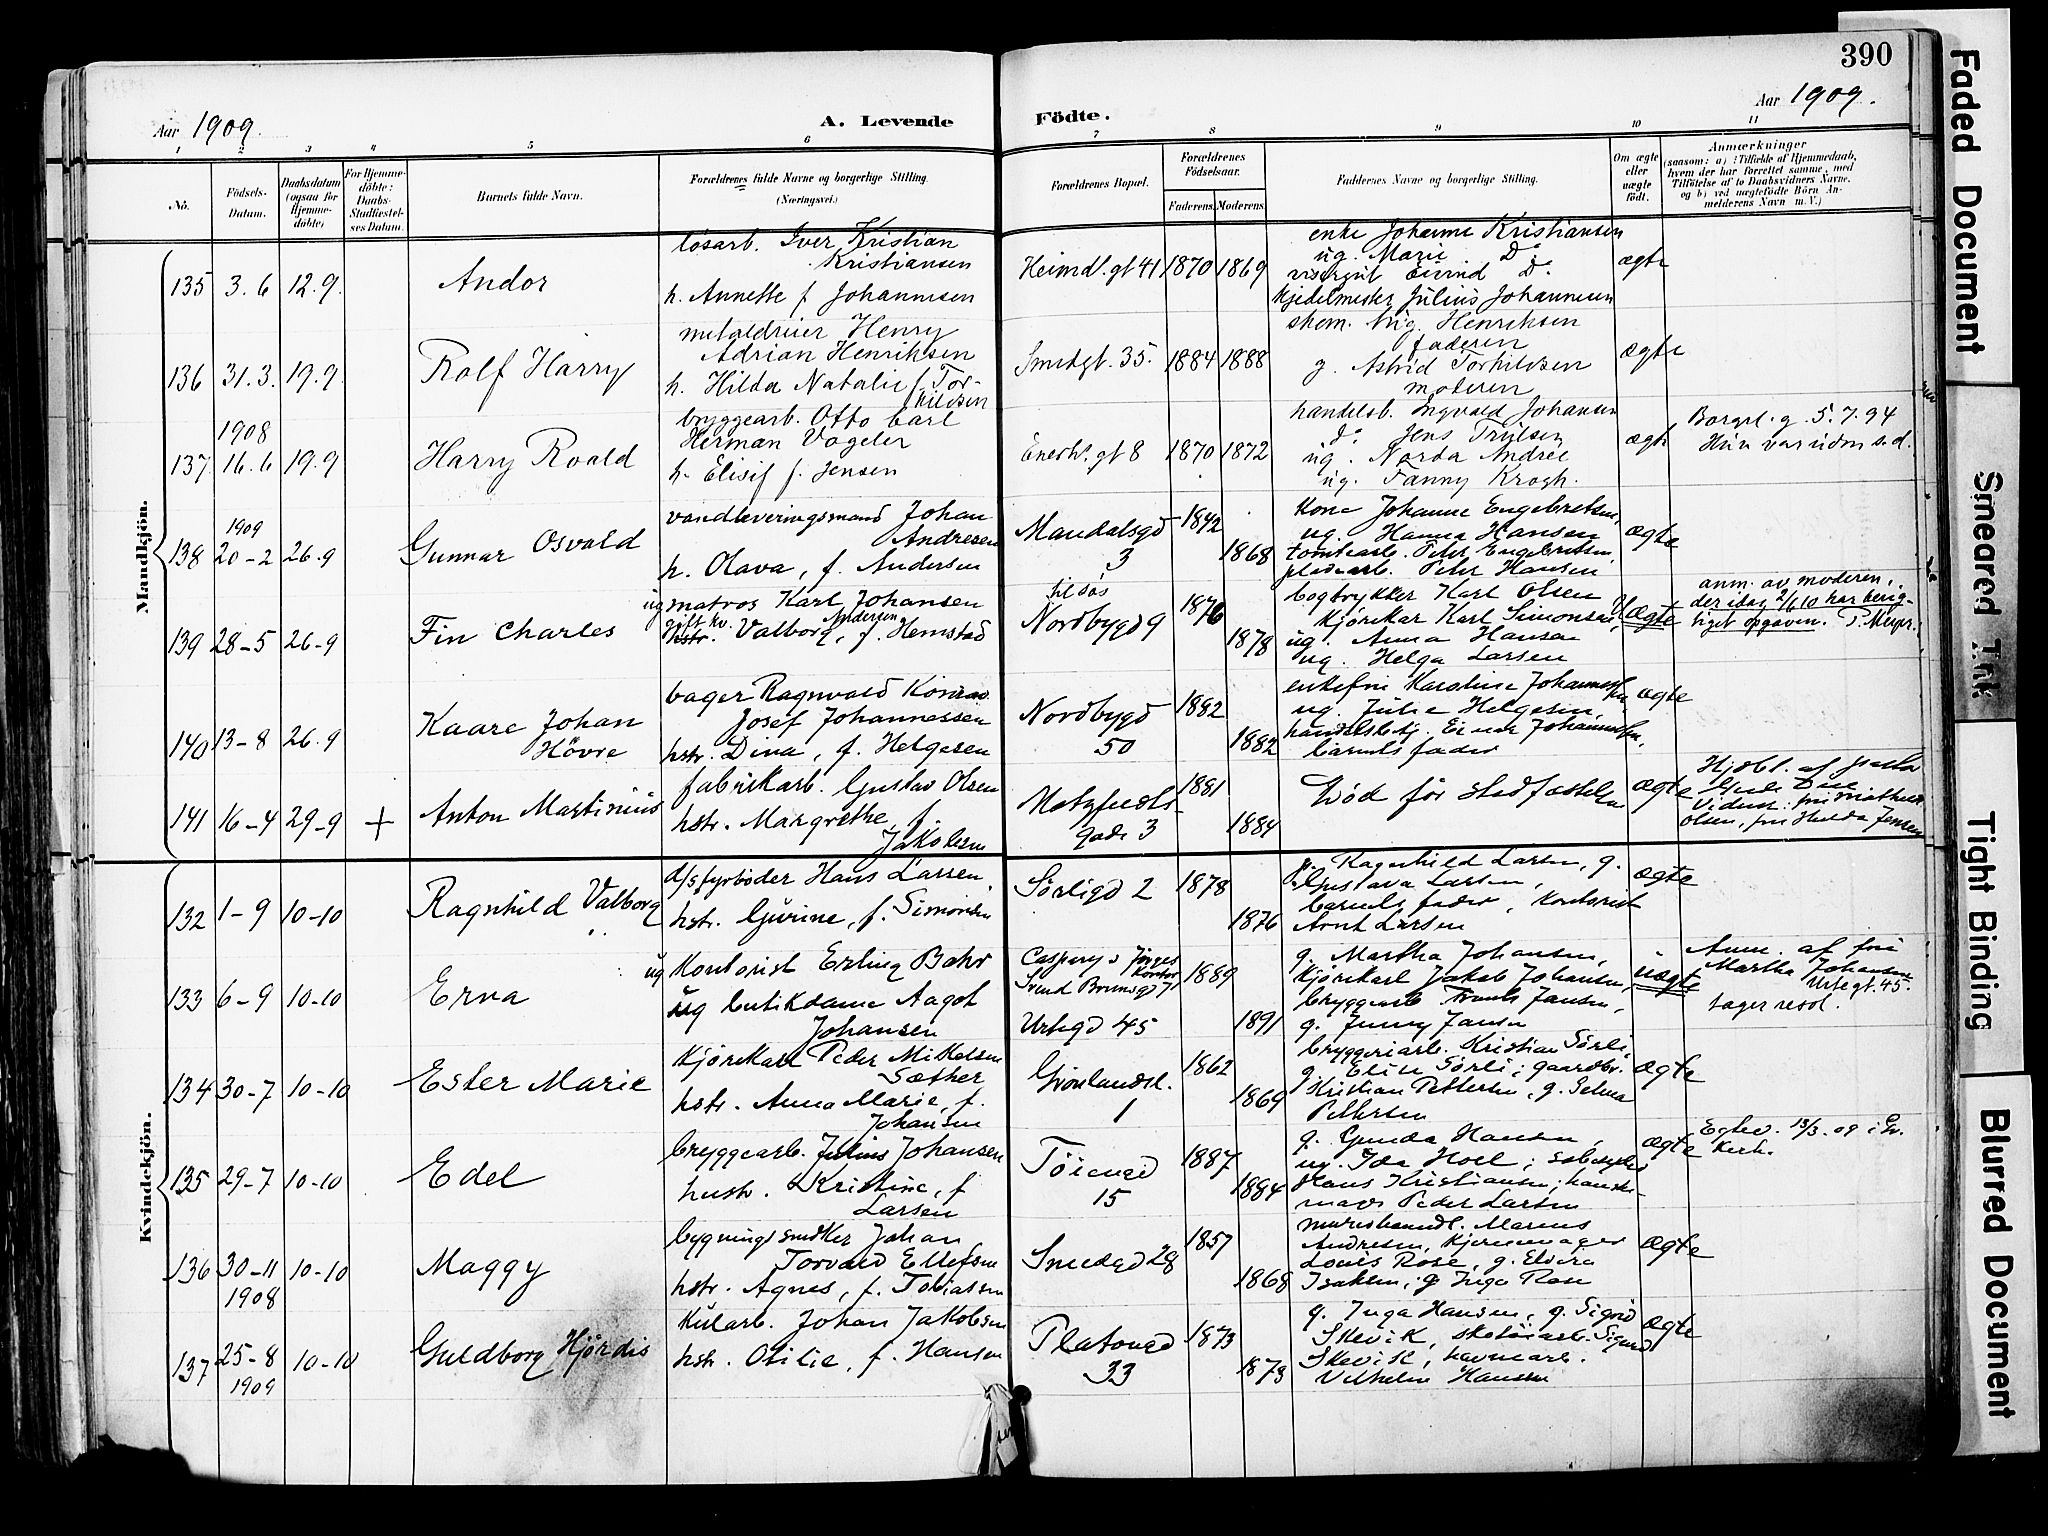 390
Aar 1909.
A. Levende Födte.
Aar 1909.
1 2 3 4 5 6 7 8 9 10 11
No.
Födsels-Datum.
Daabsdatum (ogsaa for Hjemmedöbte)
For Hjemmedöbte: Daabs-Stadfæstelses Datum.
Barnets fulde Navn.
Forældrenes fulde Navne og borgerlige Stilling.
(Næringsvei.)
Forældrenes Bopæl.
Forældrenes Födselsaar.
Faderens. Moderens.
Faddernes Navne og borgerlige Stilling.
Om ægte eller uægte födt.
Anmærkninger
(saasom: a) i Tilfælde af Hjemmedaab,
hvem der har forrettet samme, med
Tilföielse af to Daabsvidners Navne,
og b) ved uægtefödte Börn Anmelderens Navn m. V.)
Mandkjön.
135 3.6 12.9. Andor
løsarb. Iver Kristian
Kristiansen
h. Annette f. Johannesen
Heimdl.gt 41 1870 1869
enke Johanne Kristiansen
ug. Marie Do
visergut Eivind Do
Kjedelmester Julius Johannesen
ægte
136 31.3. 19.9. Rolf Harry
metaldreier Henry
Adrian Henriksen
h. Hilda Natalie f. Tor-
kildsen
Smedgt. 35. 1884 1888
skom. Aug. Henriksen
faderen
g. Astrid Torkildsen
moderen
ægte
137 1908 16.6 19.9 Harry Roald
bryggearb. Otto Carl
Herman Vogeler
h. Elisif f. Jensen
Enerh.gt 8 1870 1872
handelsb. Ingvald Johansen
do Jens Trulsen
ug. Norda Andrée
ug. Fanny Krogh.
ægte
Borgel. g. 5.7.94
Hun var uden s.d.
138 1909 20-2 26.9 Gunnar Osvald
vandleveringsmand Johan
Andresen
h. Olava, f. Andersen
Mandalsgd 3 1842 1868
Kone Johanne Engebretsen,
ug. Hanna Hansen
tomtearb. Peter Engebretsen
pladsarb. Peter Hansen
ægte
139 28-5 26-9 Fin Charles
ug matros Karl Johansen
gift kv. Andersen
hstr. Valborg, f. Hemstad
til døs
Nordbygd 9 1876 1878
bogtrykker Karl Olsen
Kjørekar Karl Simonsen
ug. Anna Hansen
ug. Helga Larsen
uægte
anm. av moderen,
der idag 2/6 10 har berig-
tiget opgaven. P. Meyer.
140 13-8 26.9 Kaare Johan
Hövre
bager Ragnvald Konrad
Josef Johannessen
hstr. Dina, f. Helgesen
Nordbygd 50 1882 1882
enkefru Karoline Johannessen
ug. Julie Helgesen
handelsbetj. Einar Johannessen,
barnets fader
ægte
141 16-4 29-9 + Anton Martinius
fabrikarb. Gustav Olsen
hstr. Margrethe, f.
Jakobsen
Motzfeldts-
gade 3 1881 1884
Død før stadfæstelsen
ægte
Hjdbt. af
Vidner: fru Mathea
Olsen, fru Hulda Jensen
Kvindekjön.
132 1-9 10-10 Ragnhild Valborg
d/s fyrbøder Hans Larsen
hstr. Gurine, f. Simonsen
Sørligd 2 1878 1876
Ragnhild Larsen, g.
Gustava Larsen,
barnets fader, Kontorist
Arnt Larsen
ægte
133 6-9 10-10 Erna
ug Kontorist Erling Bahr
ug butikdame Aagot
Johansen
Casparys Jørges Kontor
Svend Brunsgd 7 1889
Urtegd 45 1891
g. Martha Johansen,
Kjørekarl Jakob Johansen,
bryggearb. Jansen,
g. Jenny Jansen
uægte
Anm. af fru
Martha Johansen
Urtegt. 45.
tager resol.
134 30-7 10-10 Ester Marie
Kjørekarl Peder Mikelsen
Sæther
hstr. Anna Marie, f.
Johansen
Grønlandsl. 1 1862 1869
bryggeriarb. Kristian Sørli,
g. Elise Sørli; gaardbr.
Kristian Pettersen, g. Selma
Pettersen
ægte
135 29-7 10-10 Edel
bryggearb. Julius Johansen
hustr. Kristine, f.
Larsen
Tøiengd 15 1887 1884
g. Gunda Hansen,
ug. Ida Hoel;
Hans Kristiansen, hanske-
mager Peder Larsen
ægte
Egtev. 13/3. 09 i Gr.
Kirk.
136 30-11 1908 10-10 Maggy
bygningssnedker Johan
Torvald Ellefsen
hstr. Agnes, f. Tobiassen
Smedgd 28 1857 1868
Marius
Andresen,
Louis Rose, g. Elvira
Isaksen, g Inga Rose
ægte
137 25-8 1909 10-10 Guldborg Hjørdis
Kularb. Johan Jakobsen
hstr. Otilie, f. Hansen
Platougd 33 1873 1873
g. Inga Hansen, g. Sigrid
Skevik, skotøiarb. Sigurd
Skevik, havnearb.
Vilhelm Hansen
ægte
Faded Document
Smeared Ink
Tight Binding
Blurred Document